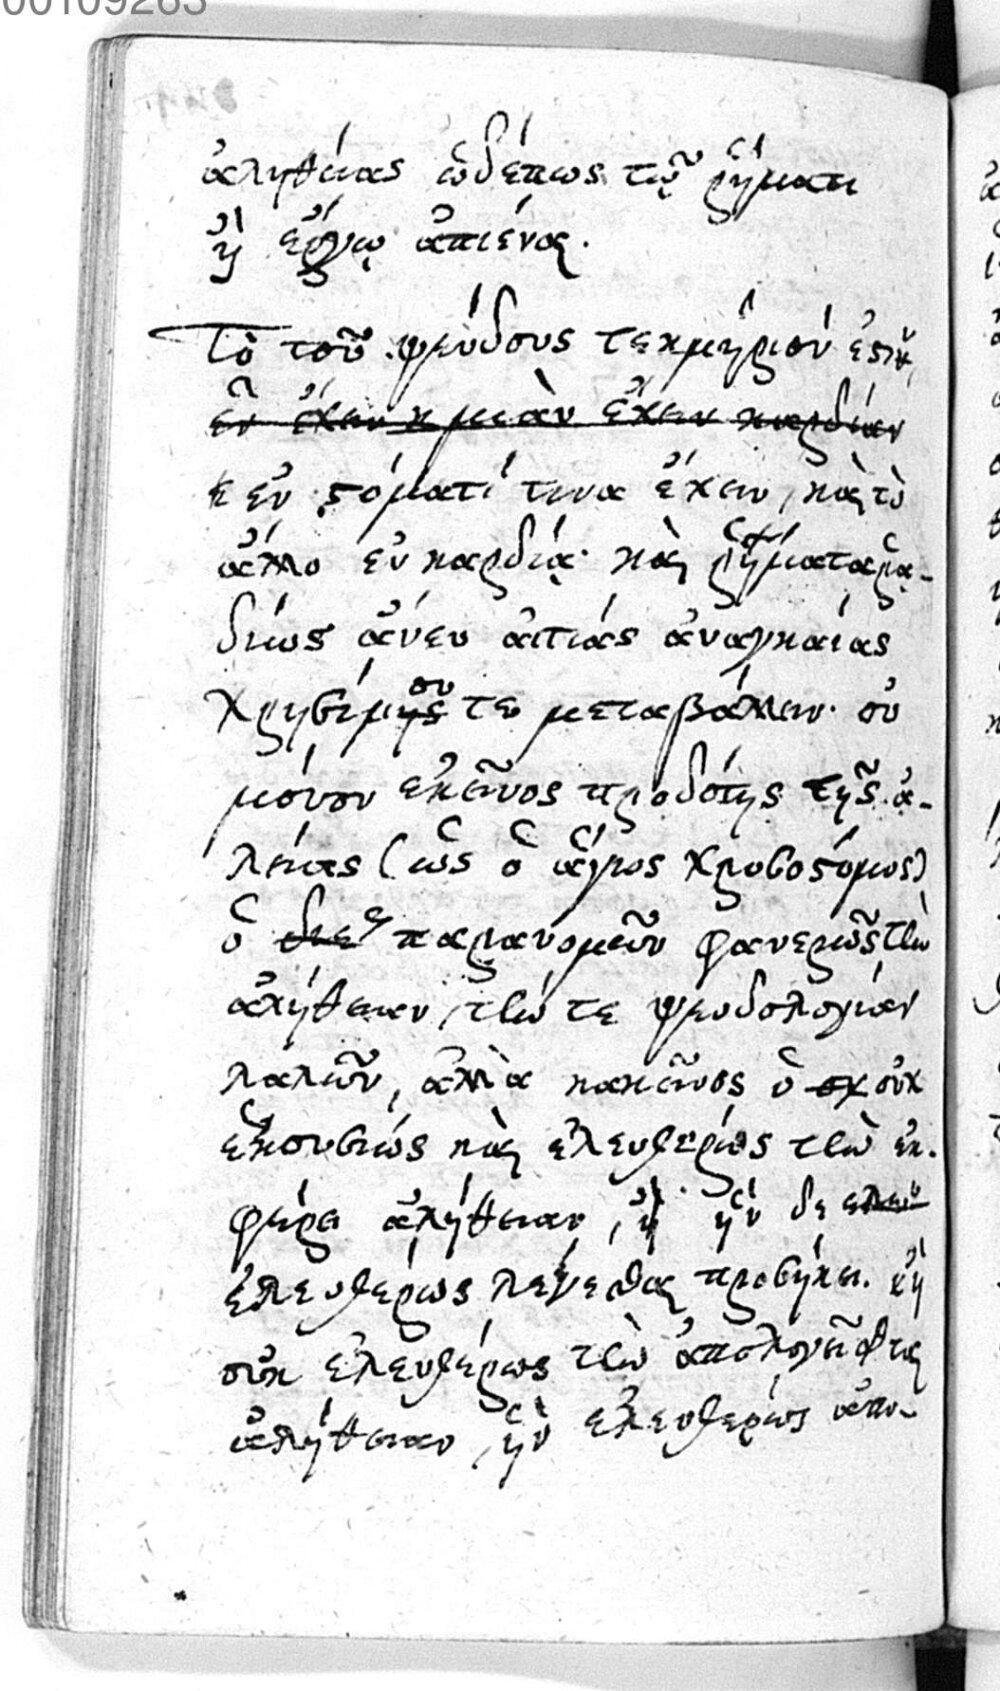 00109283
ἀληθείας ὠδέπως τῷ ῥήματι
ἢ ἔργῳ ἀπιέναι.
Τὸ τοῦ ψεύδους τεκμήριόν ἐστι,
ἓν ἔχειν κ μιὰν ἔχειν καρδίαν
ἐν στόματί τινα ἔχειν, καὶ τὸ
ἄλλο ἐν καρδίᾳ· καὶ ῥήματα ῥᾳ-
δίως ἄνευ ἀιτιάς ἀναγκαίας
χρησίμης ου τε μεταβάλλειν. οὐ
μόνον ἐκεῖνος προδότης τῆς ἀ-
λείας (ὡς ὁ ἅγιος Χρυσόστομος)
ὁ παρανομῶν φανερῶς τὴν
ἀλήθειαν, τήν τε ψευδολογίαν
λαλῶν, ἀλλὰ κακεῖνος ὁ οὐκ οὐχ
ἑκουσιώς καὶ ἐλευθερίως τὴν ἐκ-
φέρει ἀλήθειαν, ἢ ἣν δε ελευ
ἐλευθερίως λέγεσθαι προσήκει. κἢ
οὐκ ἐλευθέρως τὴν ἀπολογεῖσθαι
ἀλήθειαν, ἣν ἐλευθερίως ἀπο-